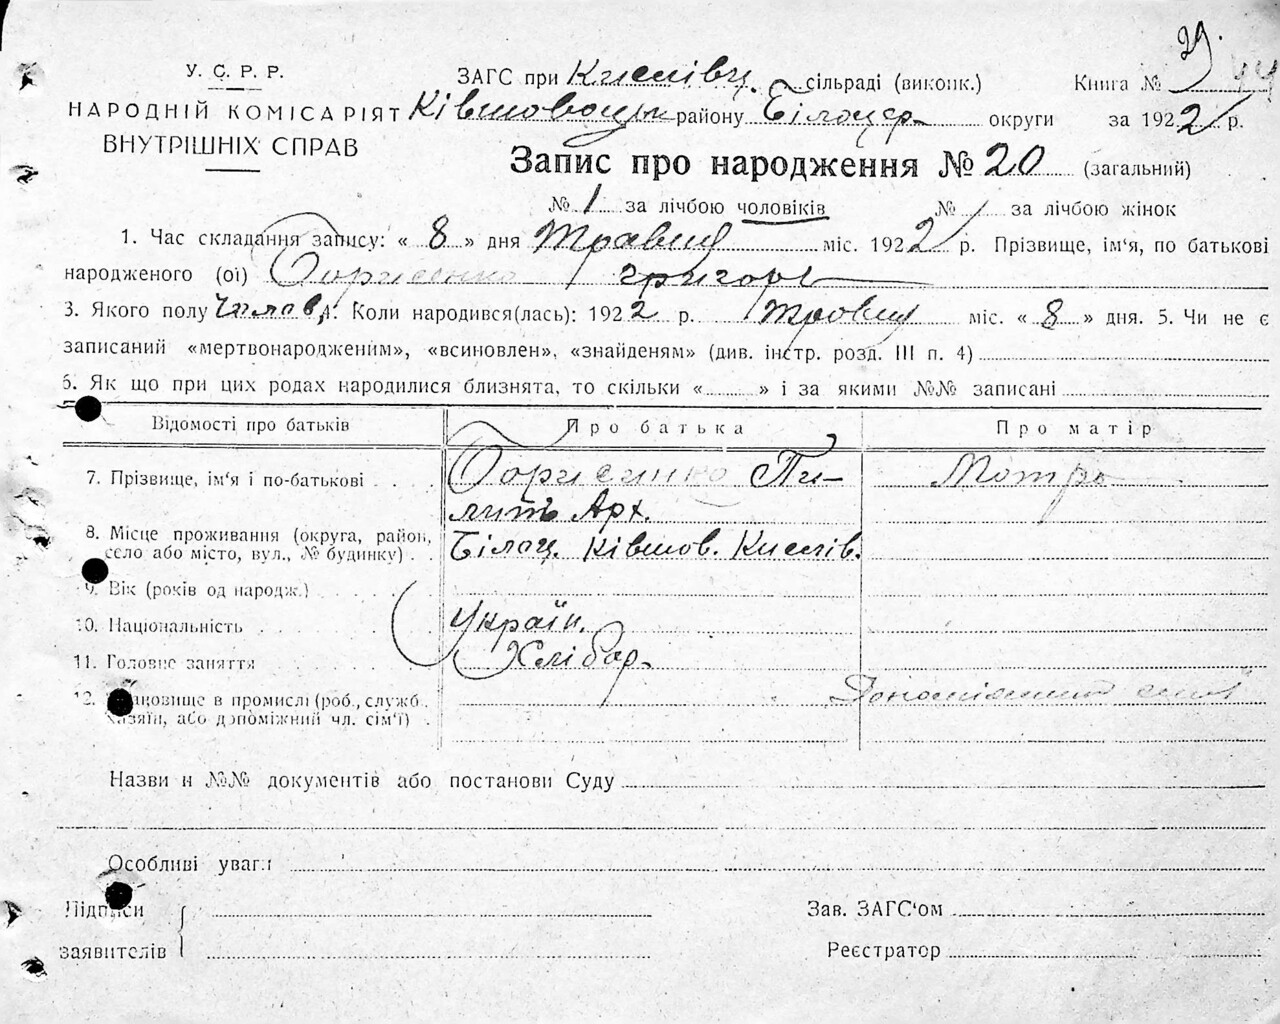 29.
44
У. С. Р. Р.
НАРОДНІЙ КОМІСАРІЯТ
ВНУТРІШНІХ СПРАВ
ЗАГС при Кислівц. сільраді (виконк.) Книга №
Ківшоватськ району Білоцер. округи за 1922 р.
Запис про народження № 20 (загальний)
№ 1 за лічбою чоловіків № / за лічбою жінок
1. Час складання запису: « 8 » дня Травня міс. 1922 р. Прізвище, ім'я, по батькові
народженого (ої) Борисенко Григорь
3. Якого полу Чолов. 4. Коли народився(лась): 1922 р. Травня міс. « 8 » дня. 5. Чи не є
записаний «мертвонародженим», «всиновлен», «знайденям» (див. інстр. розд. III п. 4)
6. Як що при цих родах народилися близнята, то скільки « » і за якими №№ записані
Відомості про батьків Про батька Про матір
7. Прізвище, ім'я і по-батькові Борисенко Пи- Мотра
липъ Арх.
8. Місце проживання (округа, район,
село або місто, вул., № будинку) Білоц. Ківшов. Кислів.
9. Вік (років од народж.)
10. Національність Україн.
11. Головне заняття Хлібор.
12. Становище в промислі (роб., служб.,
хазяїн, або допоміжний чл. сім'ї)
Назви н №№ документів або постанови Суду
Особливі уваги
Підписи
заявителів
Зав. ЗАГС'ом
Реєстратор